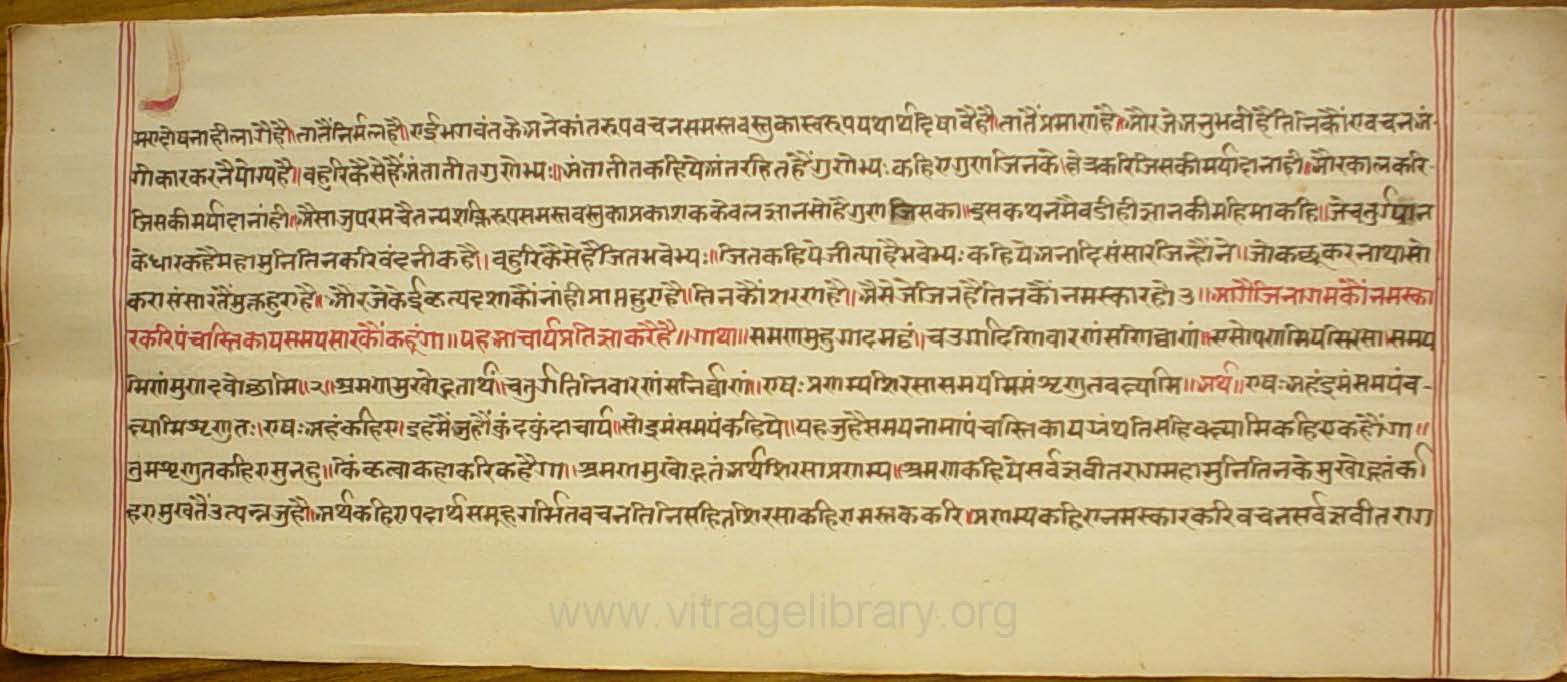 मए दोष नाही लागैहै॥ तातैं निर्मलहै॥ एई भगवंतके अनेकांतरूप वचन समस्तवस्तुका स्वरूप यथार्थ दिषावैहै॥ तातैं प्रमाणहै॥ और जे अनुभवी है तिनिकौं ए वचन अं-
गीकार करनै योग्यहै॥ बहुरि कैसेहैं अंतातीतगुणेभ्यः॥ अंतातीत कहिये अंतरहितहैं गुणेभ्यः कहिए गुण जिनके। क्षेत्रकरि जिसकी मर्यादा नाही॥ और कालकरि-
जिसकी मर्यादा नांही॥ अैसा जु परम चैतन्यशक्तिरूप समस्तवस्तुका प्रकाशक केवलज्ञान सोहै गुण जिसका॥ इस कथनमै वडीही ज्ञानकी महिमा कहि॥ जे चतुर्ग्यान
के धारकहै महामुनि तिनकरि वंदनीकहै॥ बहुरि कैसेहैं जितभवेभ्यः॥ जित कहिये जीत्याहै भवेभ्यः कहिये अनादि संसार जिन्होंने॥ जो कछू करनाथा सो
करा संसारतैं मुक्तहुएहै॥ और जे केई कृत्यदशाकौं नांही प्राप्तहुएहै॥ तिनकौं शरणहै॥ अैसे जे जिनहै तिनकौं नमस्कारहो ३॥ आगैं जिनागमकौं नमस्का
रकरि पंचास्तिकाय समयसारकौं कहूंगा॥ यह आचार्य प्रतिज्ञाकरैहै॥ गाथा॥ समणमुहुग्गदमट्ठं॥ चउगदिणिवारणं सणिव्वाणं॥ एसो पणमिय सिरसा॥ समय
मिणं सुणह वोच्छामि॥२॥ श्रमणमुखोद्गतार्थं॥ चतुर्गतिनिवारणं सनिर्वाणं॥ एषः प्रणम्य शिरसा समयमिमं शृणुत वक्ष्यामि॥ अर्थ॥ एषः अहं इमं समयं व-
क्ष्यामि शृणुतः॥ एषः अहं कहिए॥ इह मैं जुहौं कुंदकुंदाचार्य॥ सो इमं समयं कहिये॥ यह जुहै समयनामा पंचास्तिकाय ग्रंथ तिसहि वक्ष्यामि कहिए कहौंगा॥
तुम शृणुत कहिए सुनहु॥ किं कृत्वा कहाकरि कहैगा॥ श्रमणमुखोद्गतं अर्थ शिरसा प्रणम्य॥ श्रमण कहिये सर्वज्ञ वीतराग महामुनि तिनके मुखोद्गतं क
हिए मुखतैं उत्पन्न जुहै॥ अर्थ कहिए पदार्थसमूहगर्भित वचन तिनि सहित शिरसा कहिए मस्तककरि॥ प्रणम्य कहिए नमस्कारकरि वचन सर्वज्ञ वीतराग
www.vitragelibrary.org